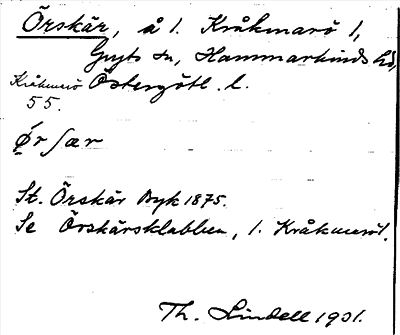 Örskär, å l. Kråkmarö l,
Gryts sn, Hammarkinds hd,
Kråkmarö Östergötl. l.
55.
Ørſær
St. Örskär Byk 1875.
Se Örskärsklabben, l. Kråkmaröl.
Th. Lindell 1931.